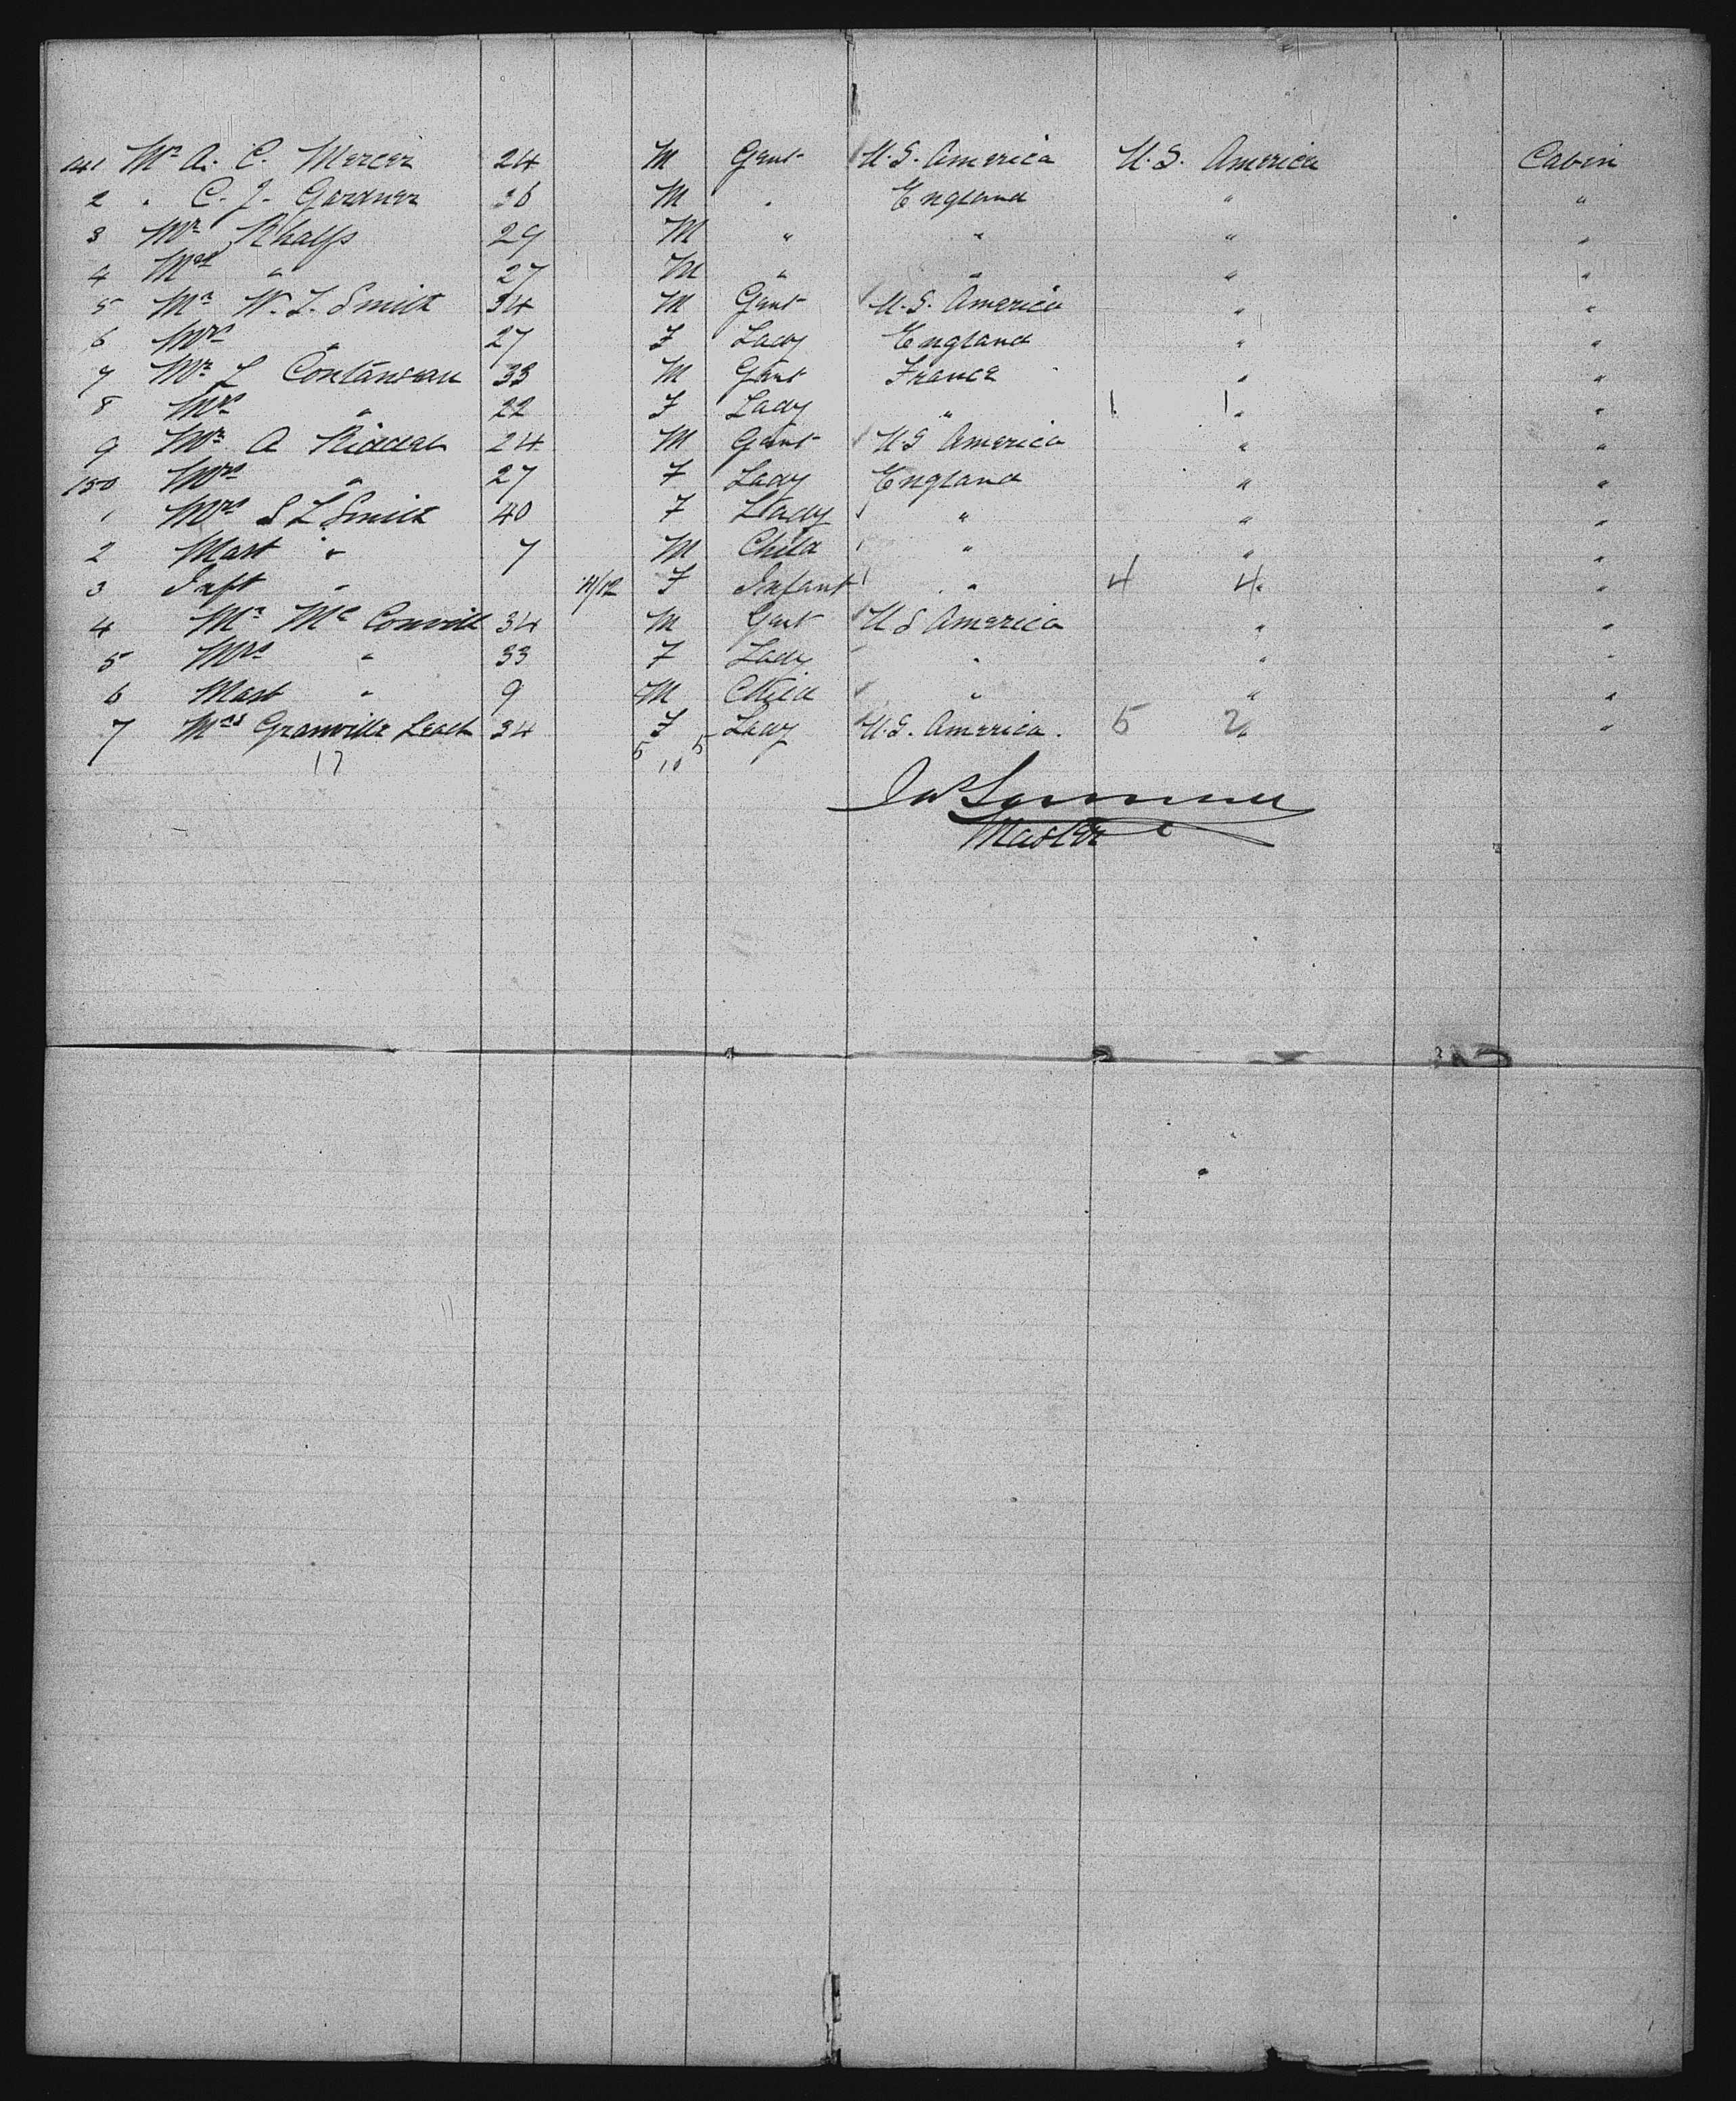 141 Mr A. C. Mercer 24 M Gent U.S. America U.S. America Cabin
2 " C. J. Gardner 36 M " England " "
3 Mr Rhalfs 29 M " " " "
4 Mr " 27 M " " " "
5 Mr W. L. Smith 34 M Gent U.S. America " "
6 Mrs " 27 F Lady England " "
7 Mr L Contanseau 33 M Gent France " "
8 Mrs " 22 F Lady " 1 1 " "
9 Mr A Riddel 24 M Gent US America " "
150 Mrs " 27 F Lady England " "
1 Mrs S L Smith 40 F Lady " " "
2 Mast " 7 M Child " " "
3 Inft " 11/12 F Infant " 4 4 " "
4 Mr Mc Convill 34 M Gent U S America " "
5 Mrs " 33 F Lady " " "
6 Mast " 9 M Child " " "
7 Mrs Granville Leach 34 F Lady U.S. America. 5 2 " "
17 5 10 5
Master